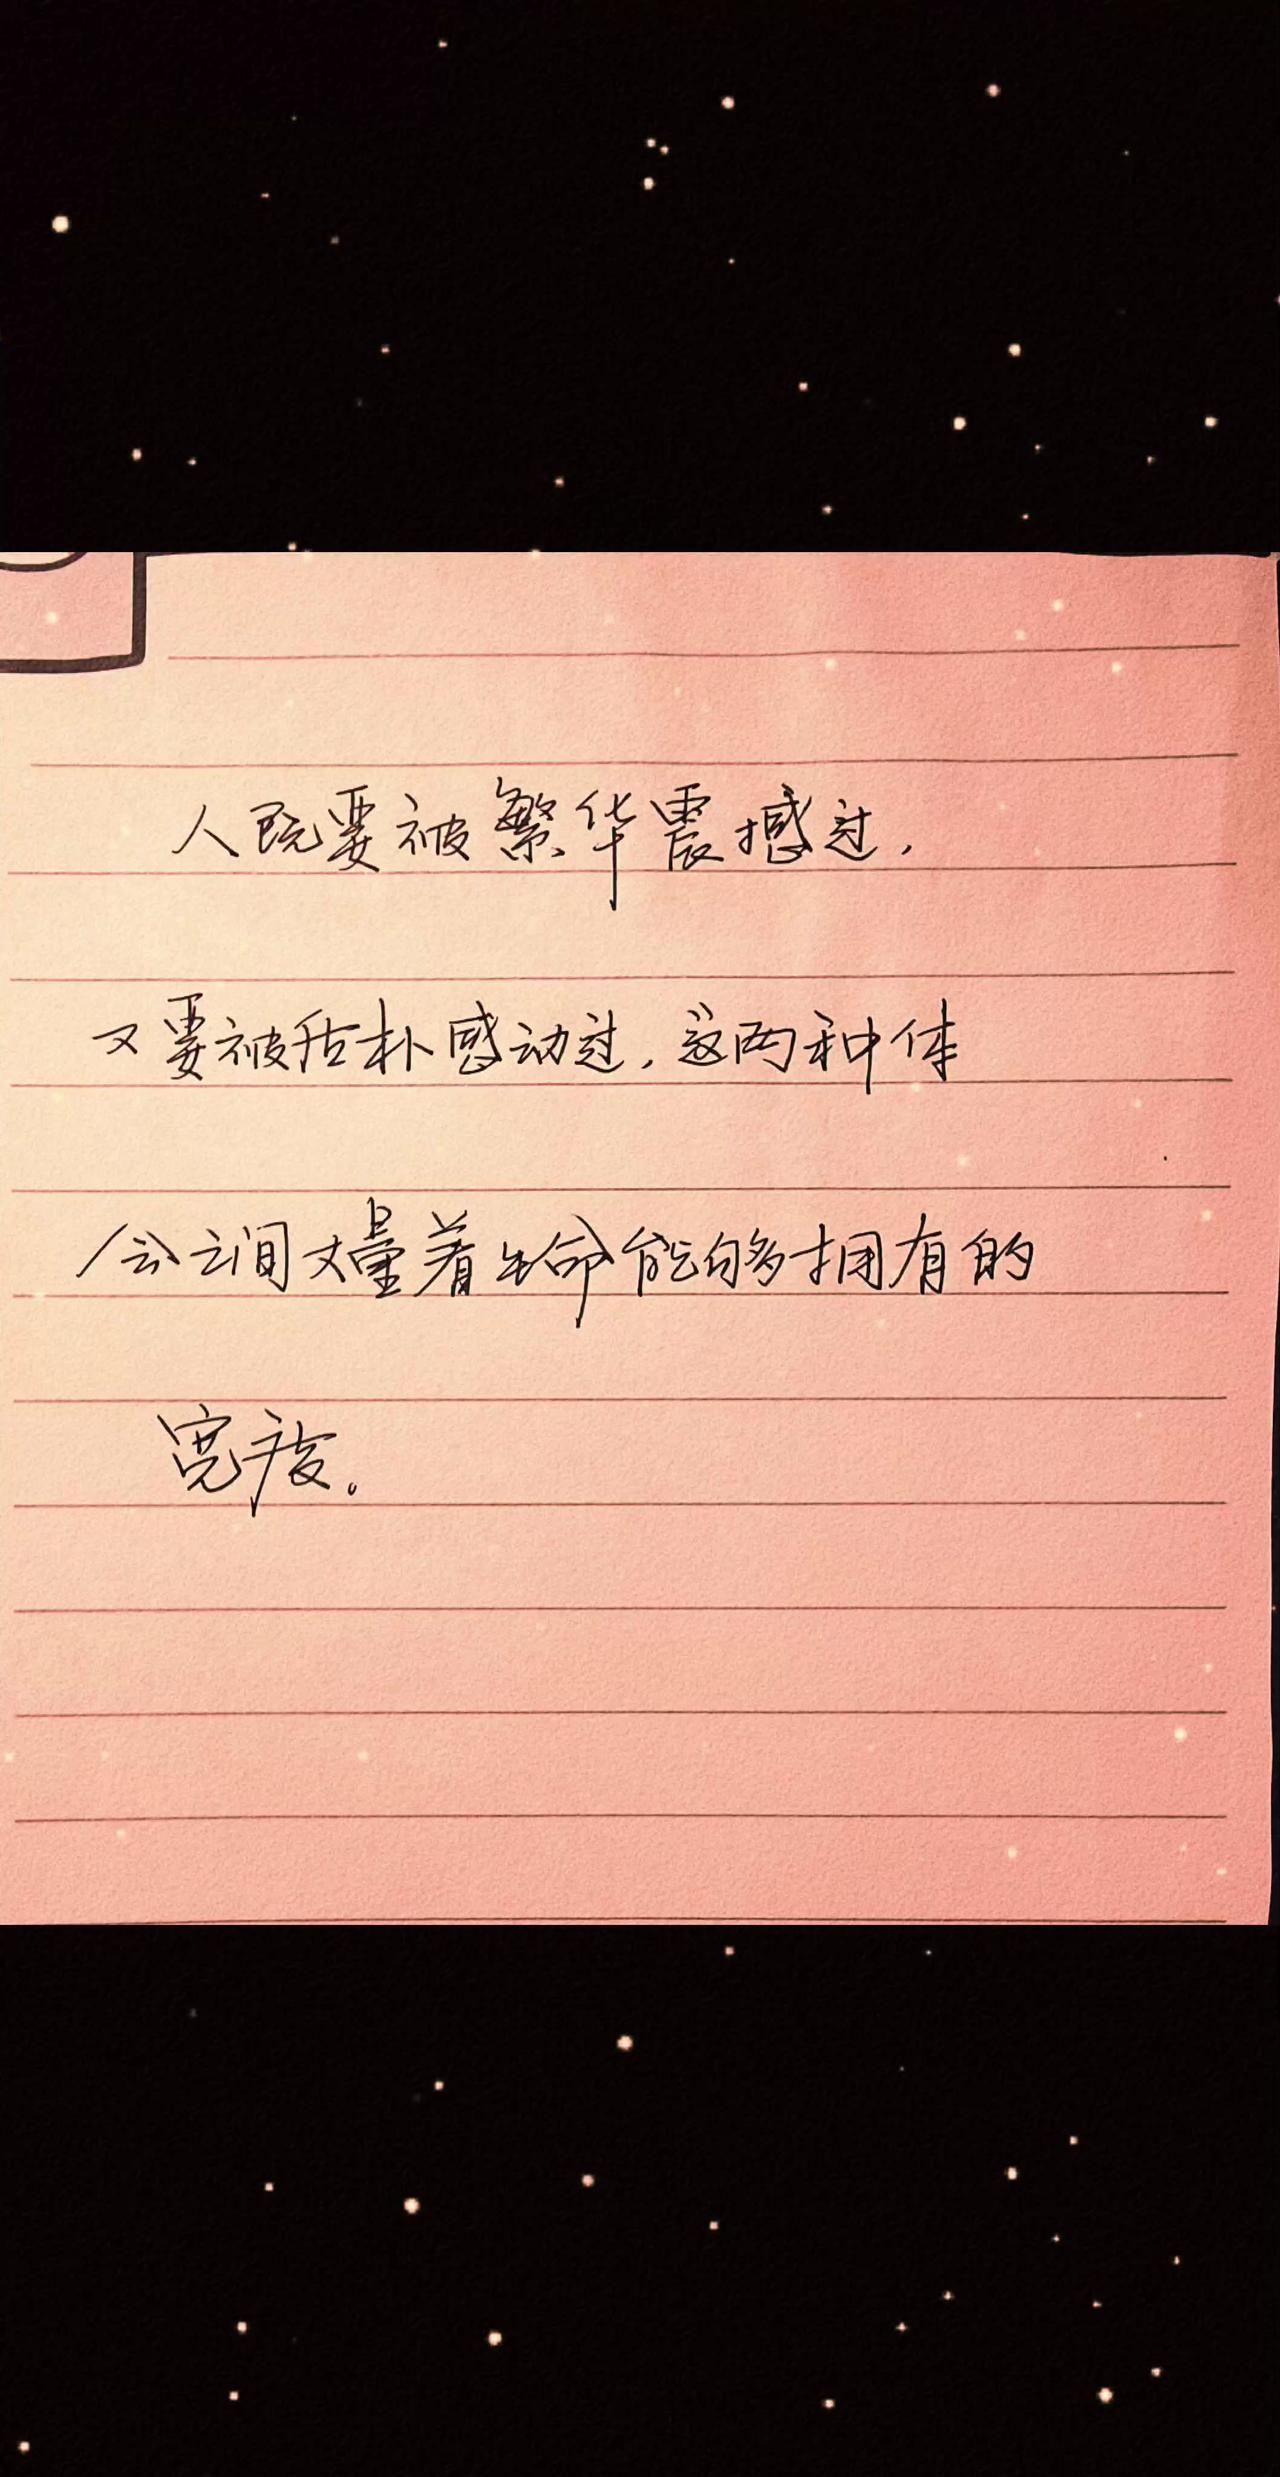 人既要被繁华震撼过,
又要被
朴感动过,这两种体
会之间丈量着生命能够拥有的
宽度。